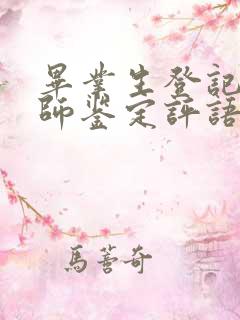 畢業生登記
師鉴定評語
馬蓄奇